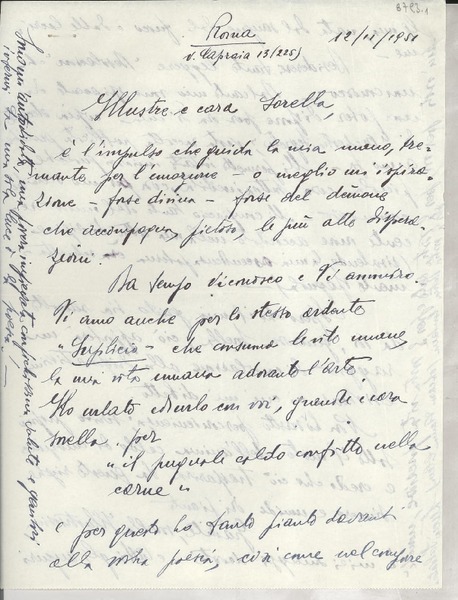 8723.1
Roma
v. Capraia 13 (225)
12/11/1951
Illustre e cara Sorella,
è l'impulso che guida la mia mano, tre-
mante per l'emozione - o meglio mi ispira-
zione - forse divina - forse del demone
che accompagna, pietoso, le più alte dispera-
zioni.
Da tempo Vi conosco e Vi ammiro.
Vi amo anche per lo stesso ardente
"Suplicio" - che consuma la vita umana
la mia vita umana adorante l'arte.
Ho urlato con voi, grande e cara
sorella, per
"il pugnale caldo confitto nella
carne"
e per questo ho tanto pianto davanti
alla vostra poesia, così come nel
Sono autodidatta, una povera impiegata con
inferni. La mia sola luce è la poesia. -